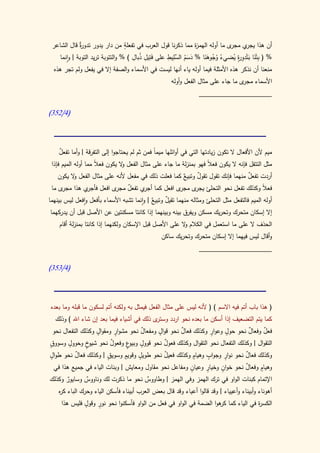 أن هذا يجري مجرى ما أوله الهمزة مما ذكرنا قول العرب في تفعلة من دار يدور تدورةٌ قال الشاعر
( % بتْنا بتَدْوِرةٍ يُضيءُ وُجُوهَنا % دَسَمُ السَّليطِ على فَتِيلِ ذُبالِ % ) والتتوبة تريد التوبة | وإنما
منعنا أن نذكر هذه الأمثلة فيما أوله ياء أنها ليست في الأسماء والصفة إلا في يفعل ولم تجر هذه
الأسماء مجرى ما جاء على مثال الفعل وأوله
(352/4)
ميم لأن الأفعال لا تكون زيادتها التي في أوائلها ميماً فمن ثم لم يحتاجوا إلى التفرقة | وأما تفعلٌ
مثل التتقل فإنه لا يكون فعلاً فهو بمنزلة ما جاء على مثال الفعل ولا يكون فعلاً مما أوله الميم فإذا
أردت تفعلٌ منهما فإنك تقول تقولٌ وتبيعٌ كما فعلت ذلك في مفعل لأنه على مثال الفعل ولا يكون
فعلاً وكذلك تفعل نحو التحلئ يجرى مجرى افعل كما أجري تفعلٌ مجرى افعل فأجري هذا مجرى ما
أوله الميم فالتفعل مثل التحلئ ومثاله منهما تقيلٌ وتبيعٌ | وإنما تشبه الأسماء بأفعل وافعل ليس بينهما
إلا إسكان متحرك وتحريك مسكن ويفرق بينه وبينهما إذا كانتا مسكنتين عن الأصل قبل أن يدركهما
الحذف لا على ما استعمل في الكلام ولا على الأصل قبل الإسكان ولكنهما إذا كانتا بمنزلة أقام
وأقال ليس فيهما إلا إسكان متحرك وتحريك ساكن
(353/4)
( هذا باب أتم فيه الاسم ) ( لأنه ليس على مثال الفعل فيمثل به ولكنه أتم لسكون ما قبله وما بعده
كما يتم التضعيف إذا أسكن ما بعده نحو اردد وسترى ذلك في أشياء فيما بعد إن شاء الله ) وذلك
فعلٌ وفعالٌ نحو حولٍ وعوارٍ وكذلك فعالٌ نحو قوالٍ ومفعالٌ نحو مشوارٍ ومقوالٍ وكذلك التفعال نحو
التقوال | وكذلك التفعال نحو التقوال وكذلك فعولٌ نحو قوولٍ وبيوعٍ وفعولٌ نحو شيوخٍ وحوولٍ وسووقٍ
وكذلك فعالٌ نحو نوارٍ وجوابٍ وهيامٍ وكذلك فعيلٌ نحو طويلٍ وقويمٍ وسويقٍ | وكذلك فعالٌ نحو طوالٍ
وهيامٍ وفعالٌ نحو خوانٍ وخيارٍ وعيانٍ ومفاعل نحو مقاول ومعايش | وبنات الياء في جميع هذا في
الإتمام كبنات الواو في ترك الهمز وفي الهمز | وطاووسٌ نحو ما ذكرت لك وناووسٌ وسايورٌ وكذلك
أهوناء وأبيناء وأعيياء | وقد قالوا أعياء وقد قال بعض العرب أبيناء فأسكن الياء وحرك الباء كره
الكسرة في الياء كما كرهوا الضمة في الواو في فعل من الواو فأسكنوا نحو نورٍ وقولٍ فليس هذا